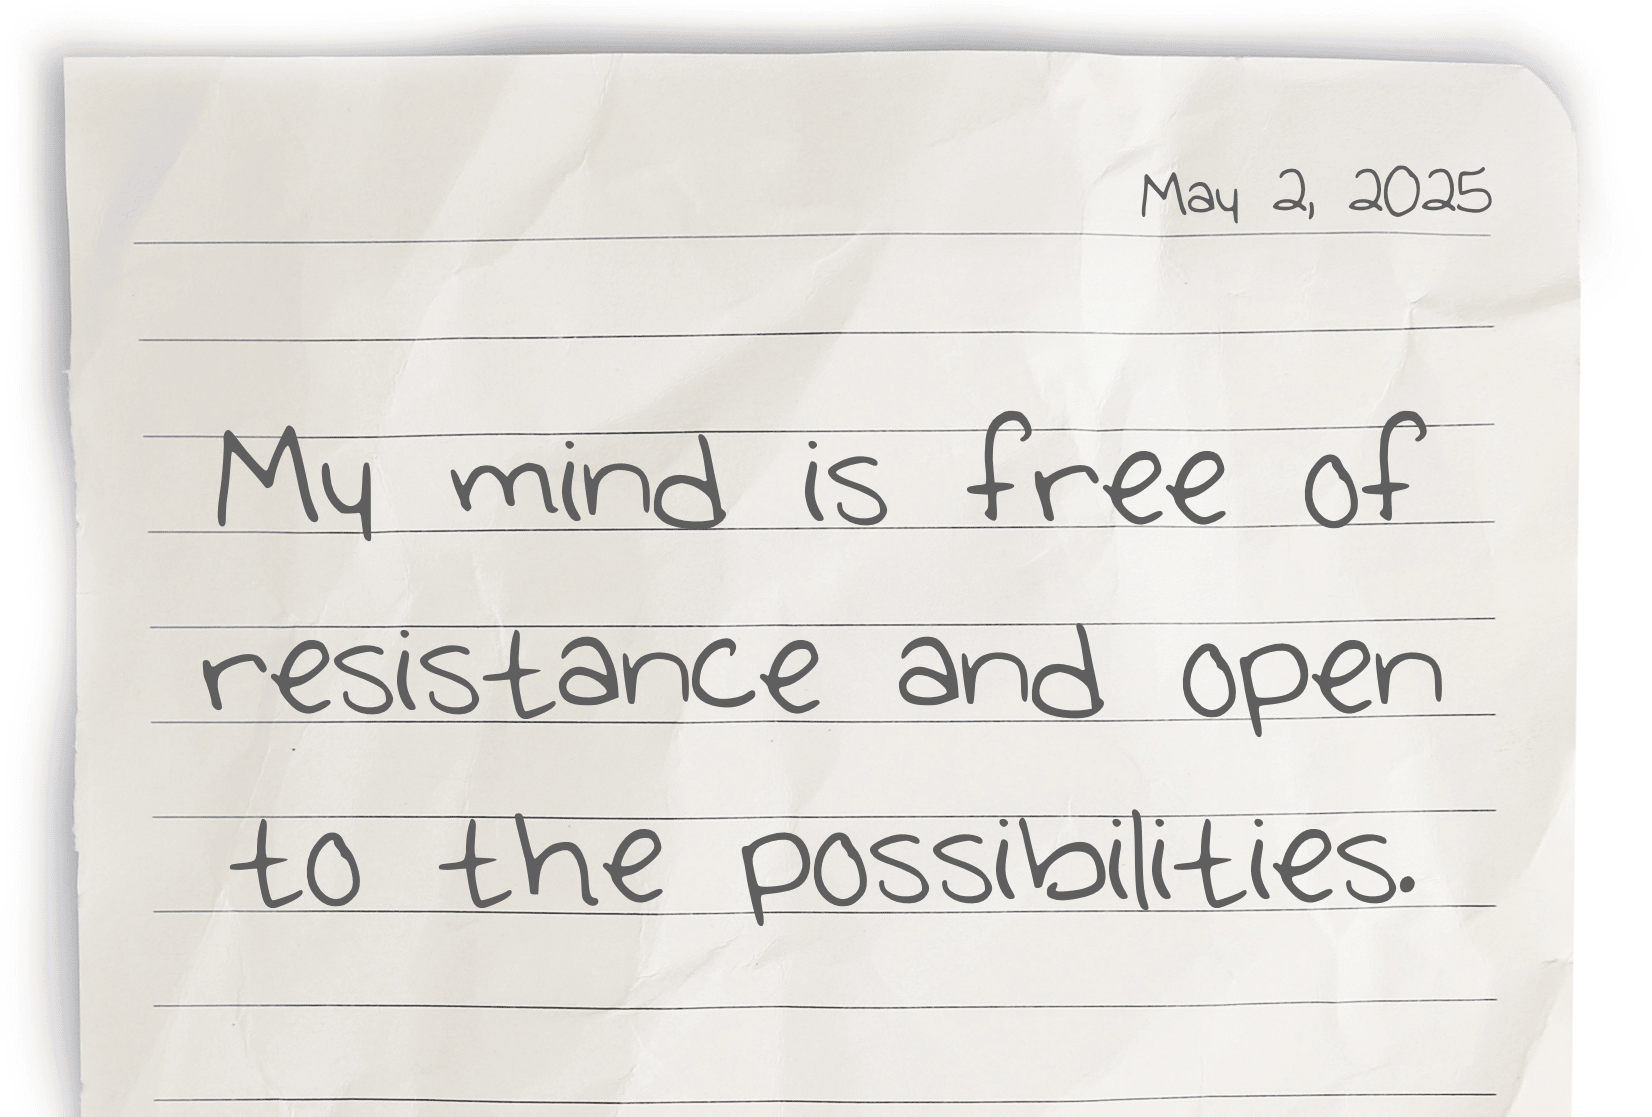 May 2, 2025
My mind is free of
resistance and open
to the possibilities.